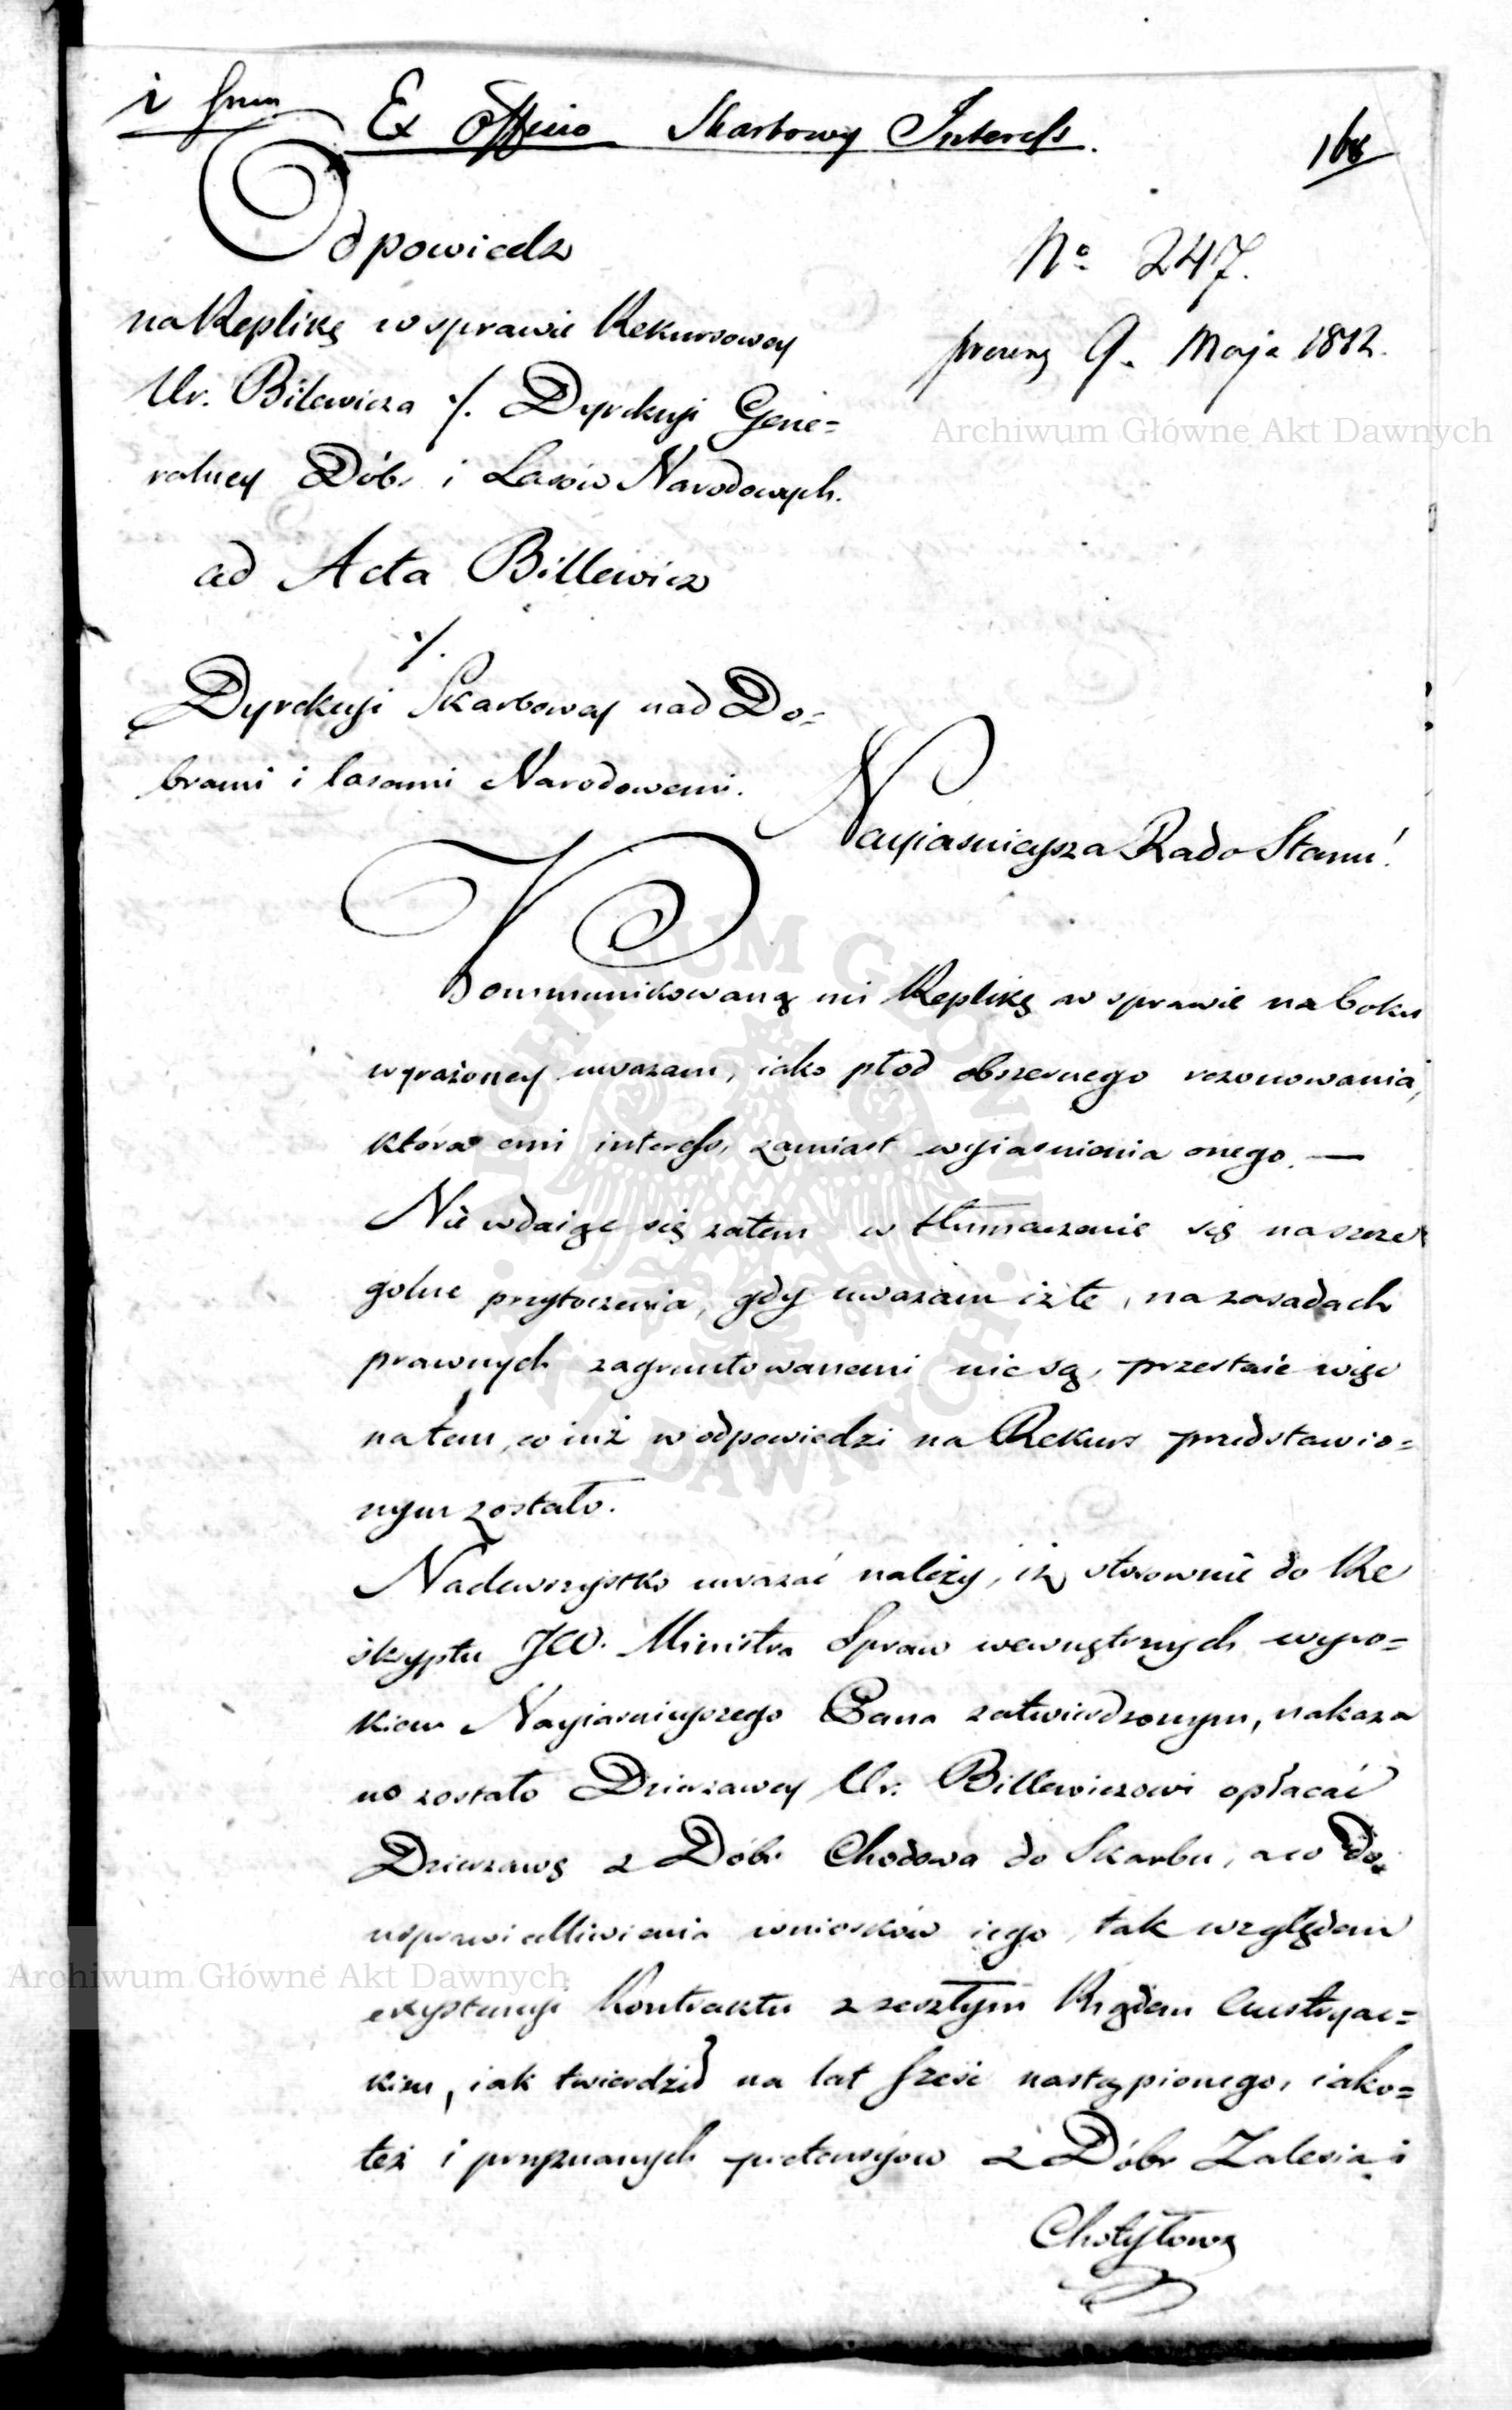 Ex Officio Skarbowy Interess.
168
Odpowiedz
na Replikę w sprawie Rekursowey
Ur. Bilewicza ./. Dyrekcyi Gene=
ralney Dóbr i Lasów Narodowych.
ad Acta Billewicz
./.
Dyrekcyi Skarbowey nad Do=
brami i lasami Narodowemi.
No 247.
9. Maja 1812.
Archiwum Główne Akt Dawnych
Nayiasnieysza Rado Stanu!
Kommunikowaną mi Replikę w sprawie na boku
wyrażoney uwazam, iako płod obszernego rezonowania,
która cmi interess, zamiast wyiasnienia onego. —
Nie wdaiąc się zatem w tłumaczenie się na szcze
golne przytoczenia, gdy uwazam iż te, na zasadach
prawnych zagruntowanemi nie są, przestaie więc
na tem, co iuż w odpowiedzi na Rekurs przedstawio=
nym zostało.
Nadewszystko uwazać należy, iż stosownie do Re
skryptu JW. Ministra Spraw wewnętrznych wyro=
kiem Nayiasnieyszego Pana zatwierdzonym, nakaza
no zostało Dzierzawcy Ur. Billewiczowi opłacać
Dzierzawę z Dóbr Chodowa do Skarbu, a co do
usprawiedliwienia wniosków iego tak względem
exystencyi Kontraktu z zeszłym Rządem Austryac=
kim, iak twierdził na lat szesc nastąpionego, iako=
też i przyznanych pretensyow z Dóbr Zalesia i
Chotyłowa
ARCHIWUM GŁÓWNE AKT DAWNYCH
Archiwum Główne Akt Dawnych